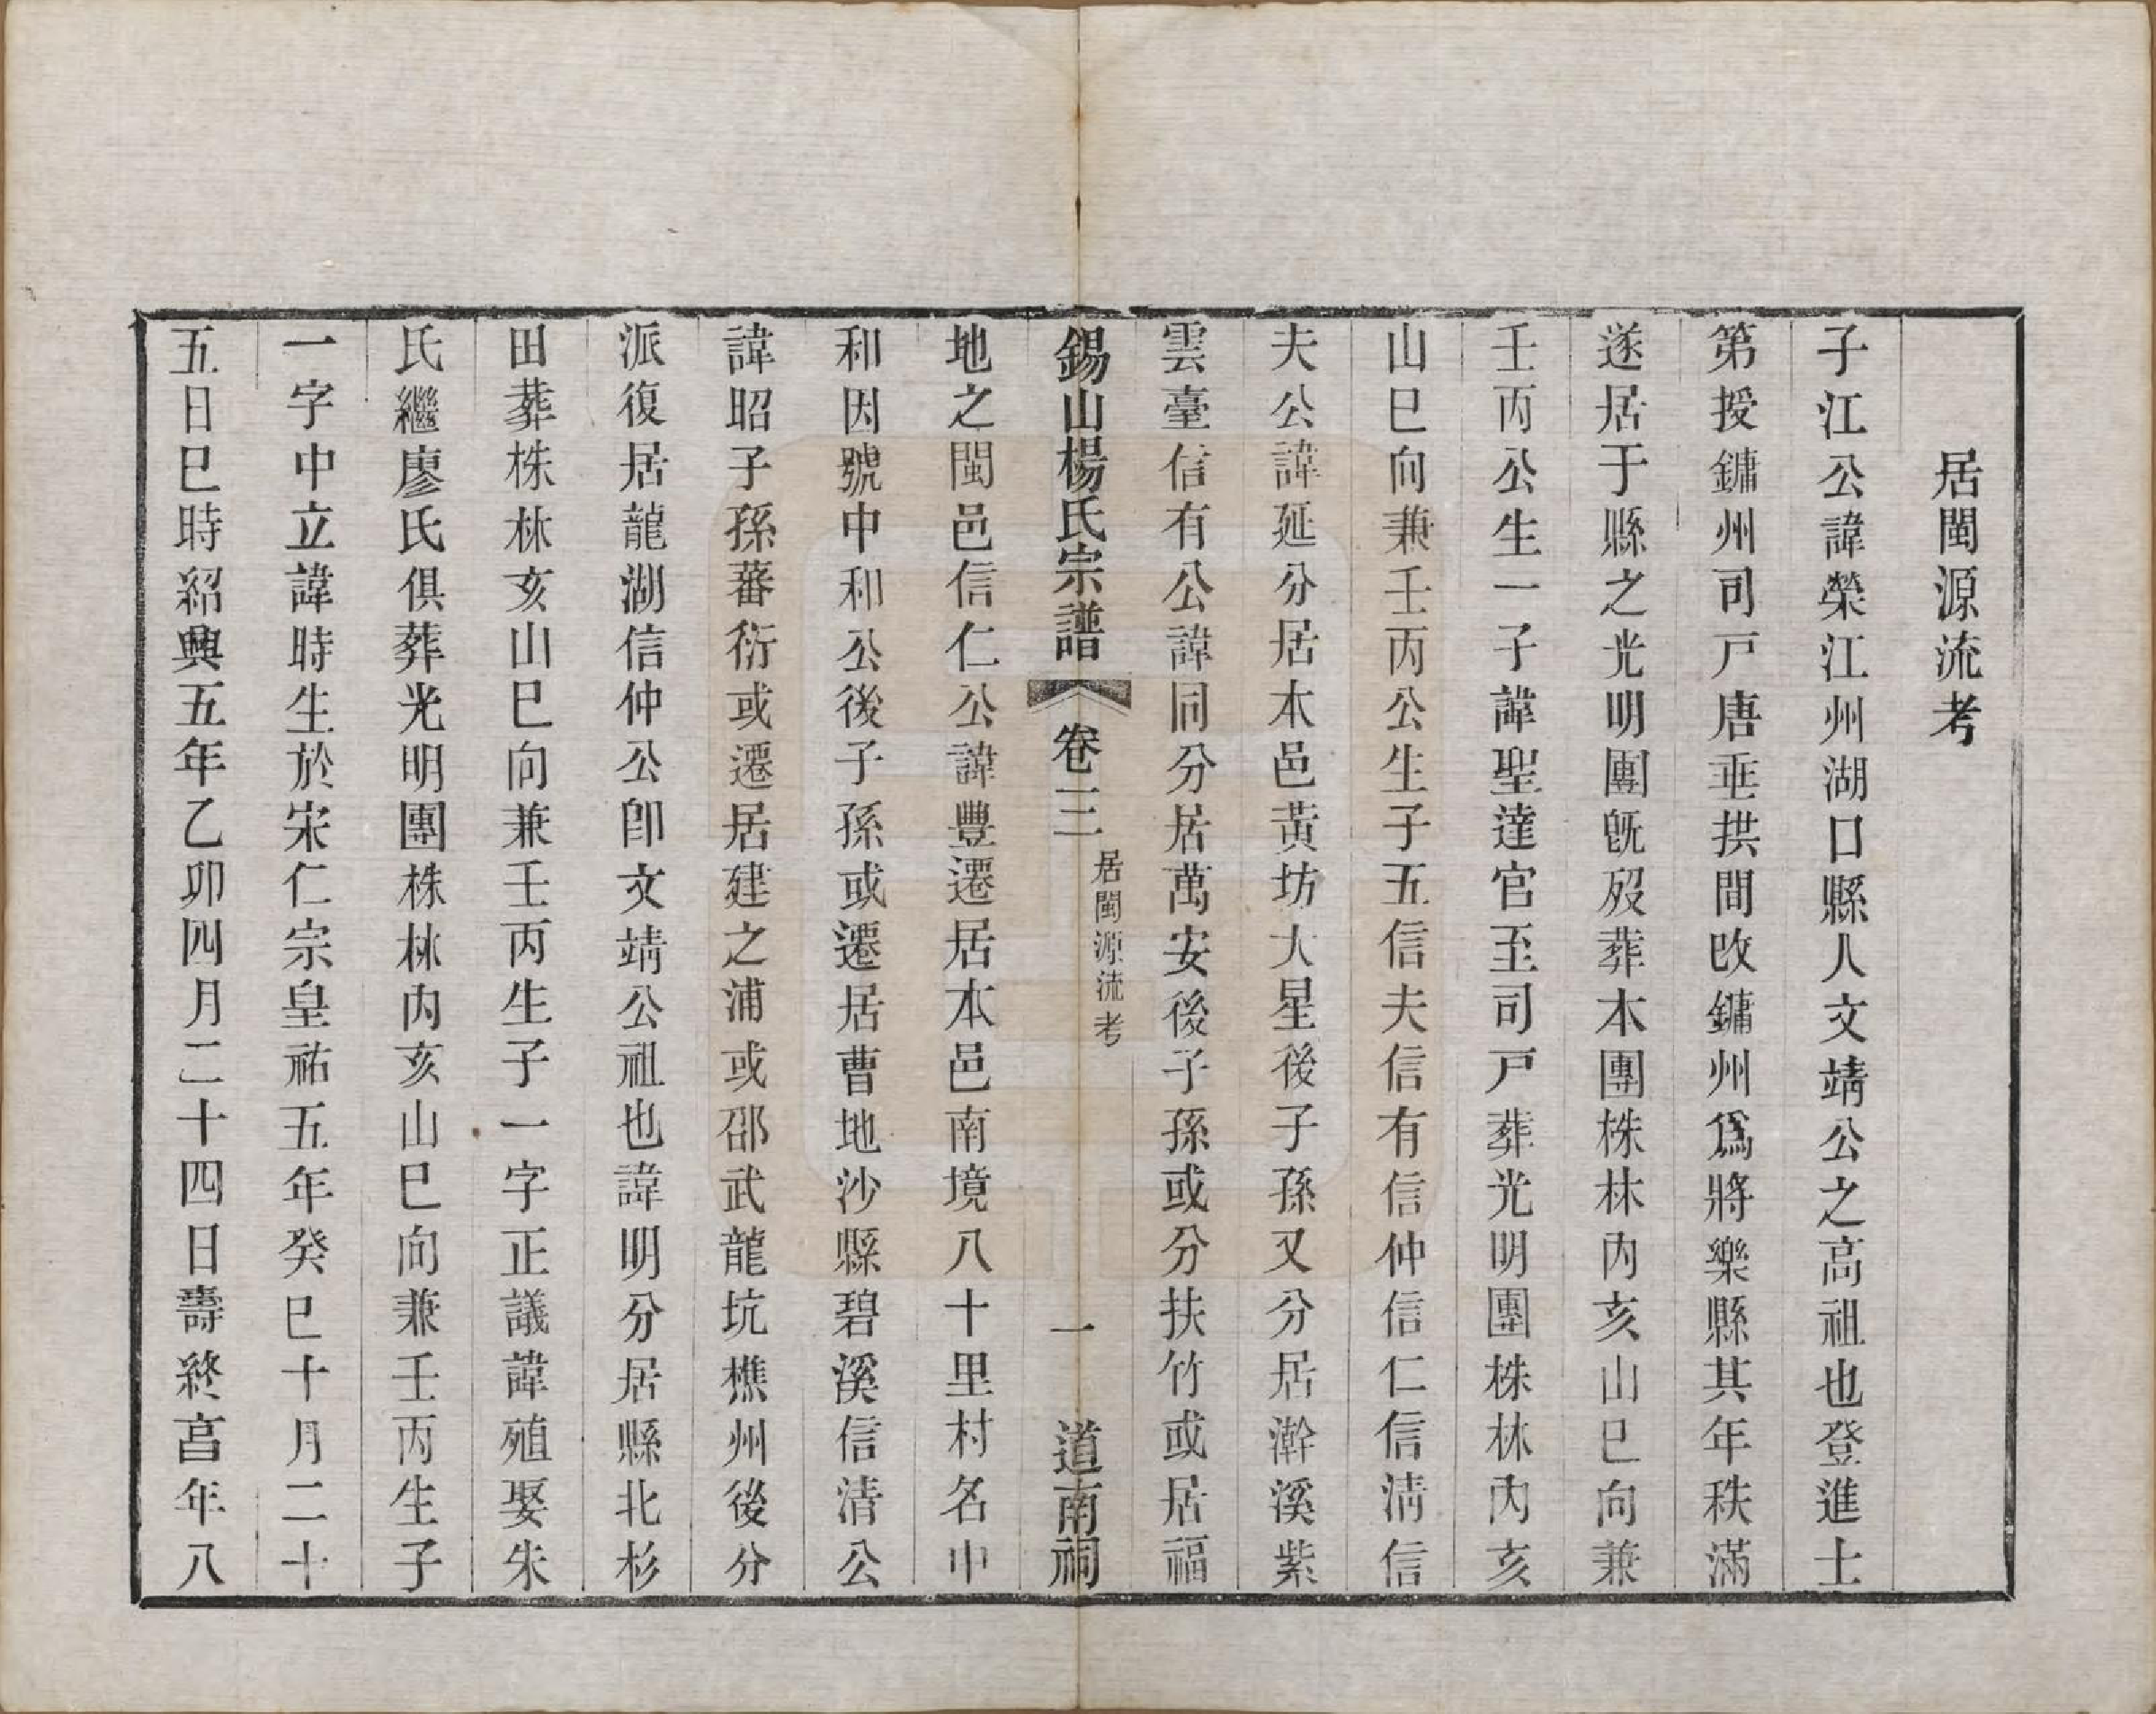 居閩源流考
子江公諱榮江州湖口縣人文靖公之高祖也登進士
第授鏞州司戸唐垂拱間改鏞州爲將樂縣其年秩滿
遂居于縣之光明團旣歿葬本團株林內亥山巳向兼
壬丙公生一子諱聖達官至司戸葬光明團株林內亥
山巳向兼壬丙公生子五信夫信有信仲信仁信淸信
夫公諱延分居本邑黃坊大星後子孫又分居澣溪紫
雲臺信有公諱同分居萬安後子孫或分扶竹或居福
錫山楊氏宗譜 卷三 居閩源流考 一 道南祠
地之閩邑信仁公諱豐遷居本邑南境八十里村名中
和因號中和公後子孫或遷居曹地沙縣碧溪信清公
諱昭子孫蕃衍或遷居建之浦或邵武龍坑樵州後分
派復居龍湖信仲公卽文靖公祖也諱明分居縣北杉
田葬株林亥山巳向兼壬丙生子一字正議諱殖娶朱
氏繼廖氏俱葬光明團株林內亥山巳向兼壬丙生子
一字中立諱時生於宋仁宗皇祐五年癸巳十月二十
五日巳時紹興五年乙卯四月二十四日壽終享年八